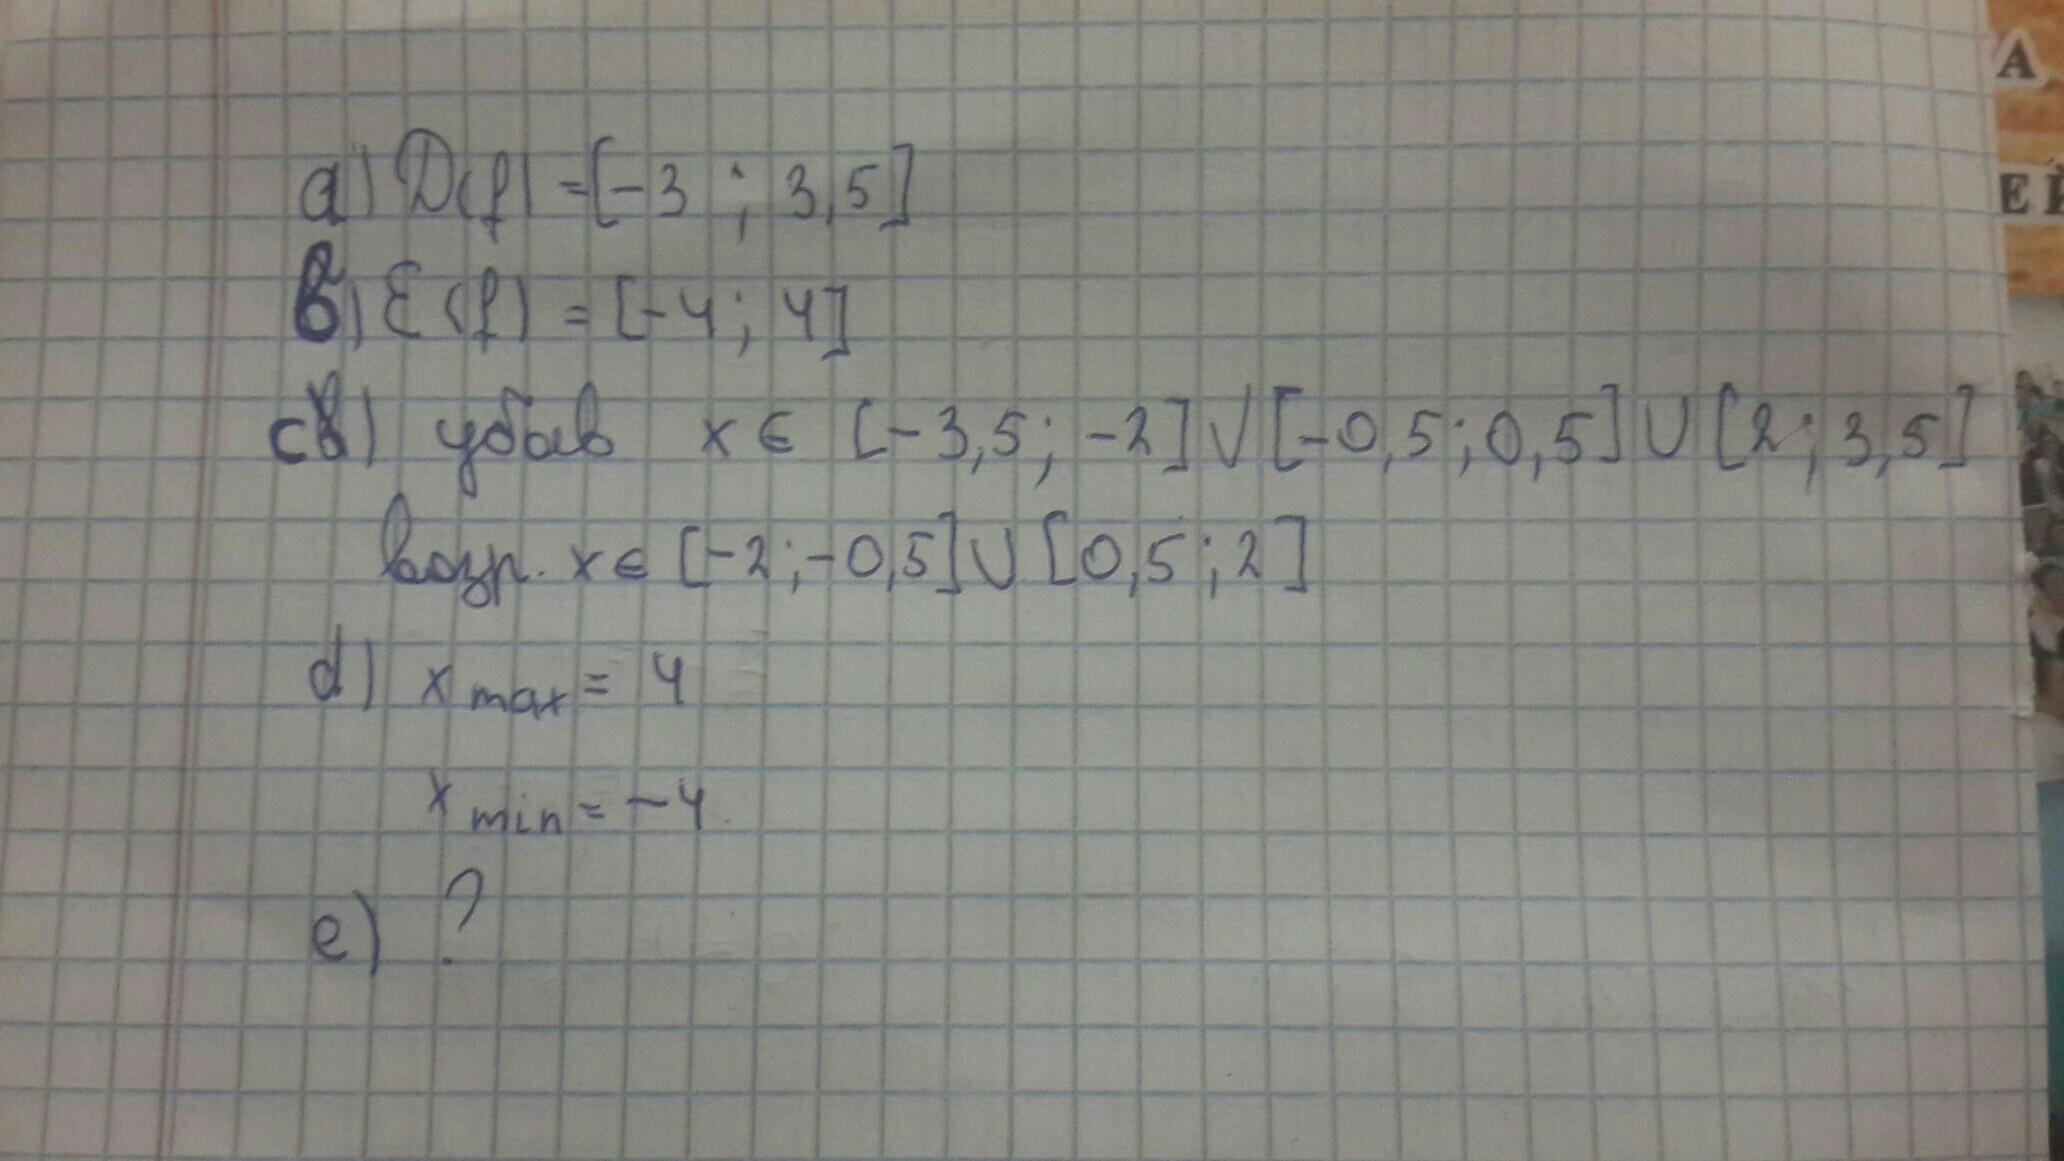 a) D(f) = [-3 ; 3,5]
б) E(f) = [-4; 4]
с) убав x ∈ [-3,5; -2] ∪ [-0,5; 0,5] ∪ [2; 3,5]
возр. x ∈ [-2; -0,5] ∪ [0,5; 2]
d) x max = 4
x min = -4
e) ?
А
ЕЙ